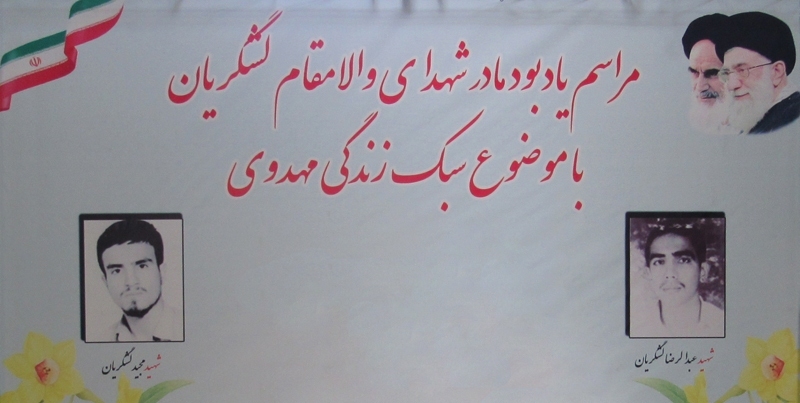 مراسم یادبود مادر شهدای والامقام لشگریان
با موضوع سبک زندگی مهدوی
شهید عبدالرضا لشگریان
شهید مجید لشگریان